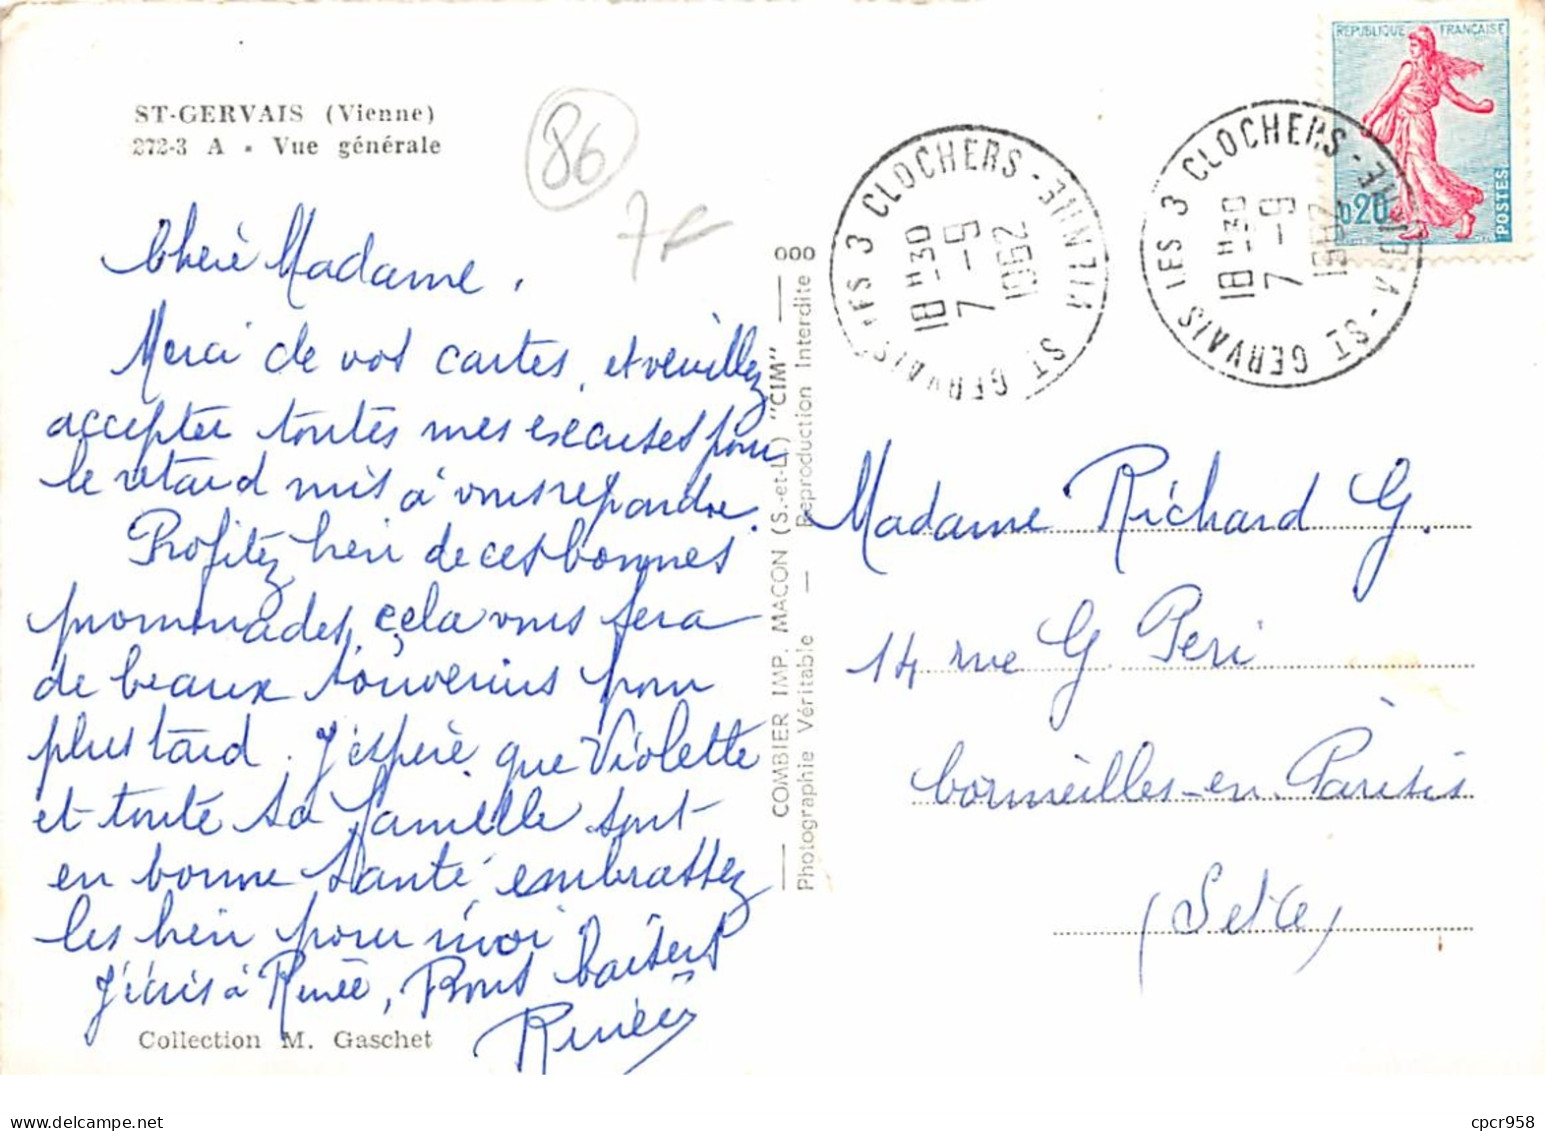 ST-GERVAIS (Vienne)
272-3 A - Vue générale
86
7F
Chère Madame,
Merci de vos cartes, et veuillez
accepter toutes mes excuses pour
le retard mis à vous répondre.
Profitez bien de ces bonnes
promenades, cela vous fera
de beaux souvenirs pour
plus tard. J'espère que Violette
et toute sa famille sont
en bonne santé, embrassez
les bien pour moi
J'écris à Renée, Bons baisers
Renée
Collection M. Gaschet
COMBIER IMP. MACON (S.-et-L.) "CIM"
Photographie Véritable — Reproduction Interdite
000
ST GERVAIS LES 3 CLOCHERS - VIENNE
18 H 30
7 - 9
1962
ST GERVAIS LES 3 CLOCHERS - VIENNE
18 H 30
7 - 9
1962
REPUBLIQUE FRANÇAISE
0,20
POSTES
Madame Richard G.
14 rue G Peri
Cormeilles-en-Parisis
(Set Oe)
cpcr958